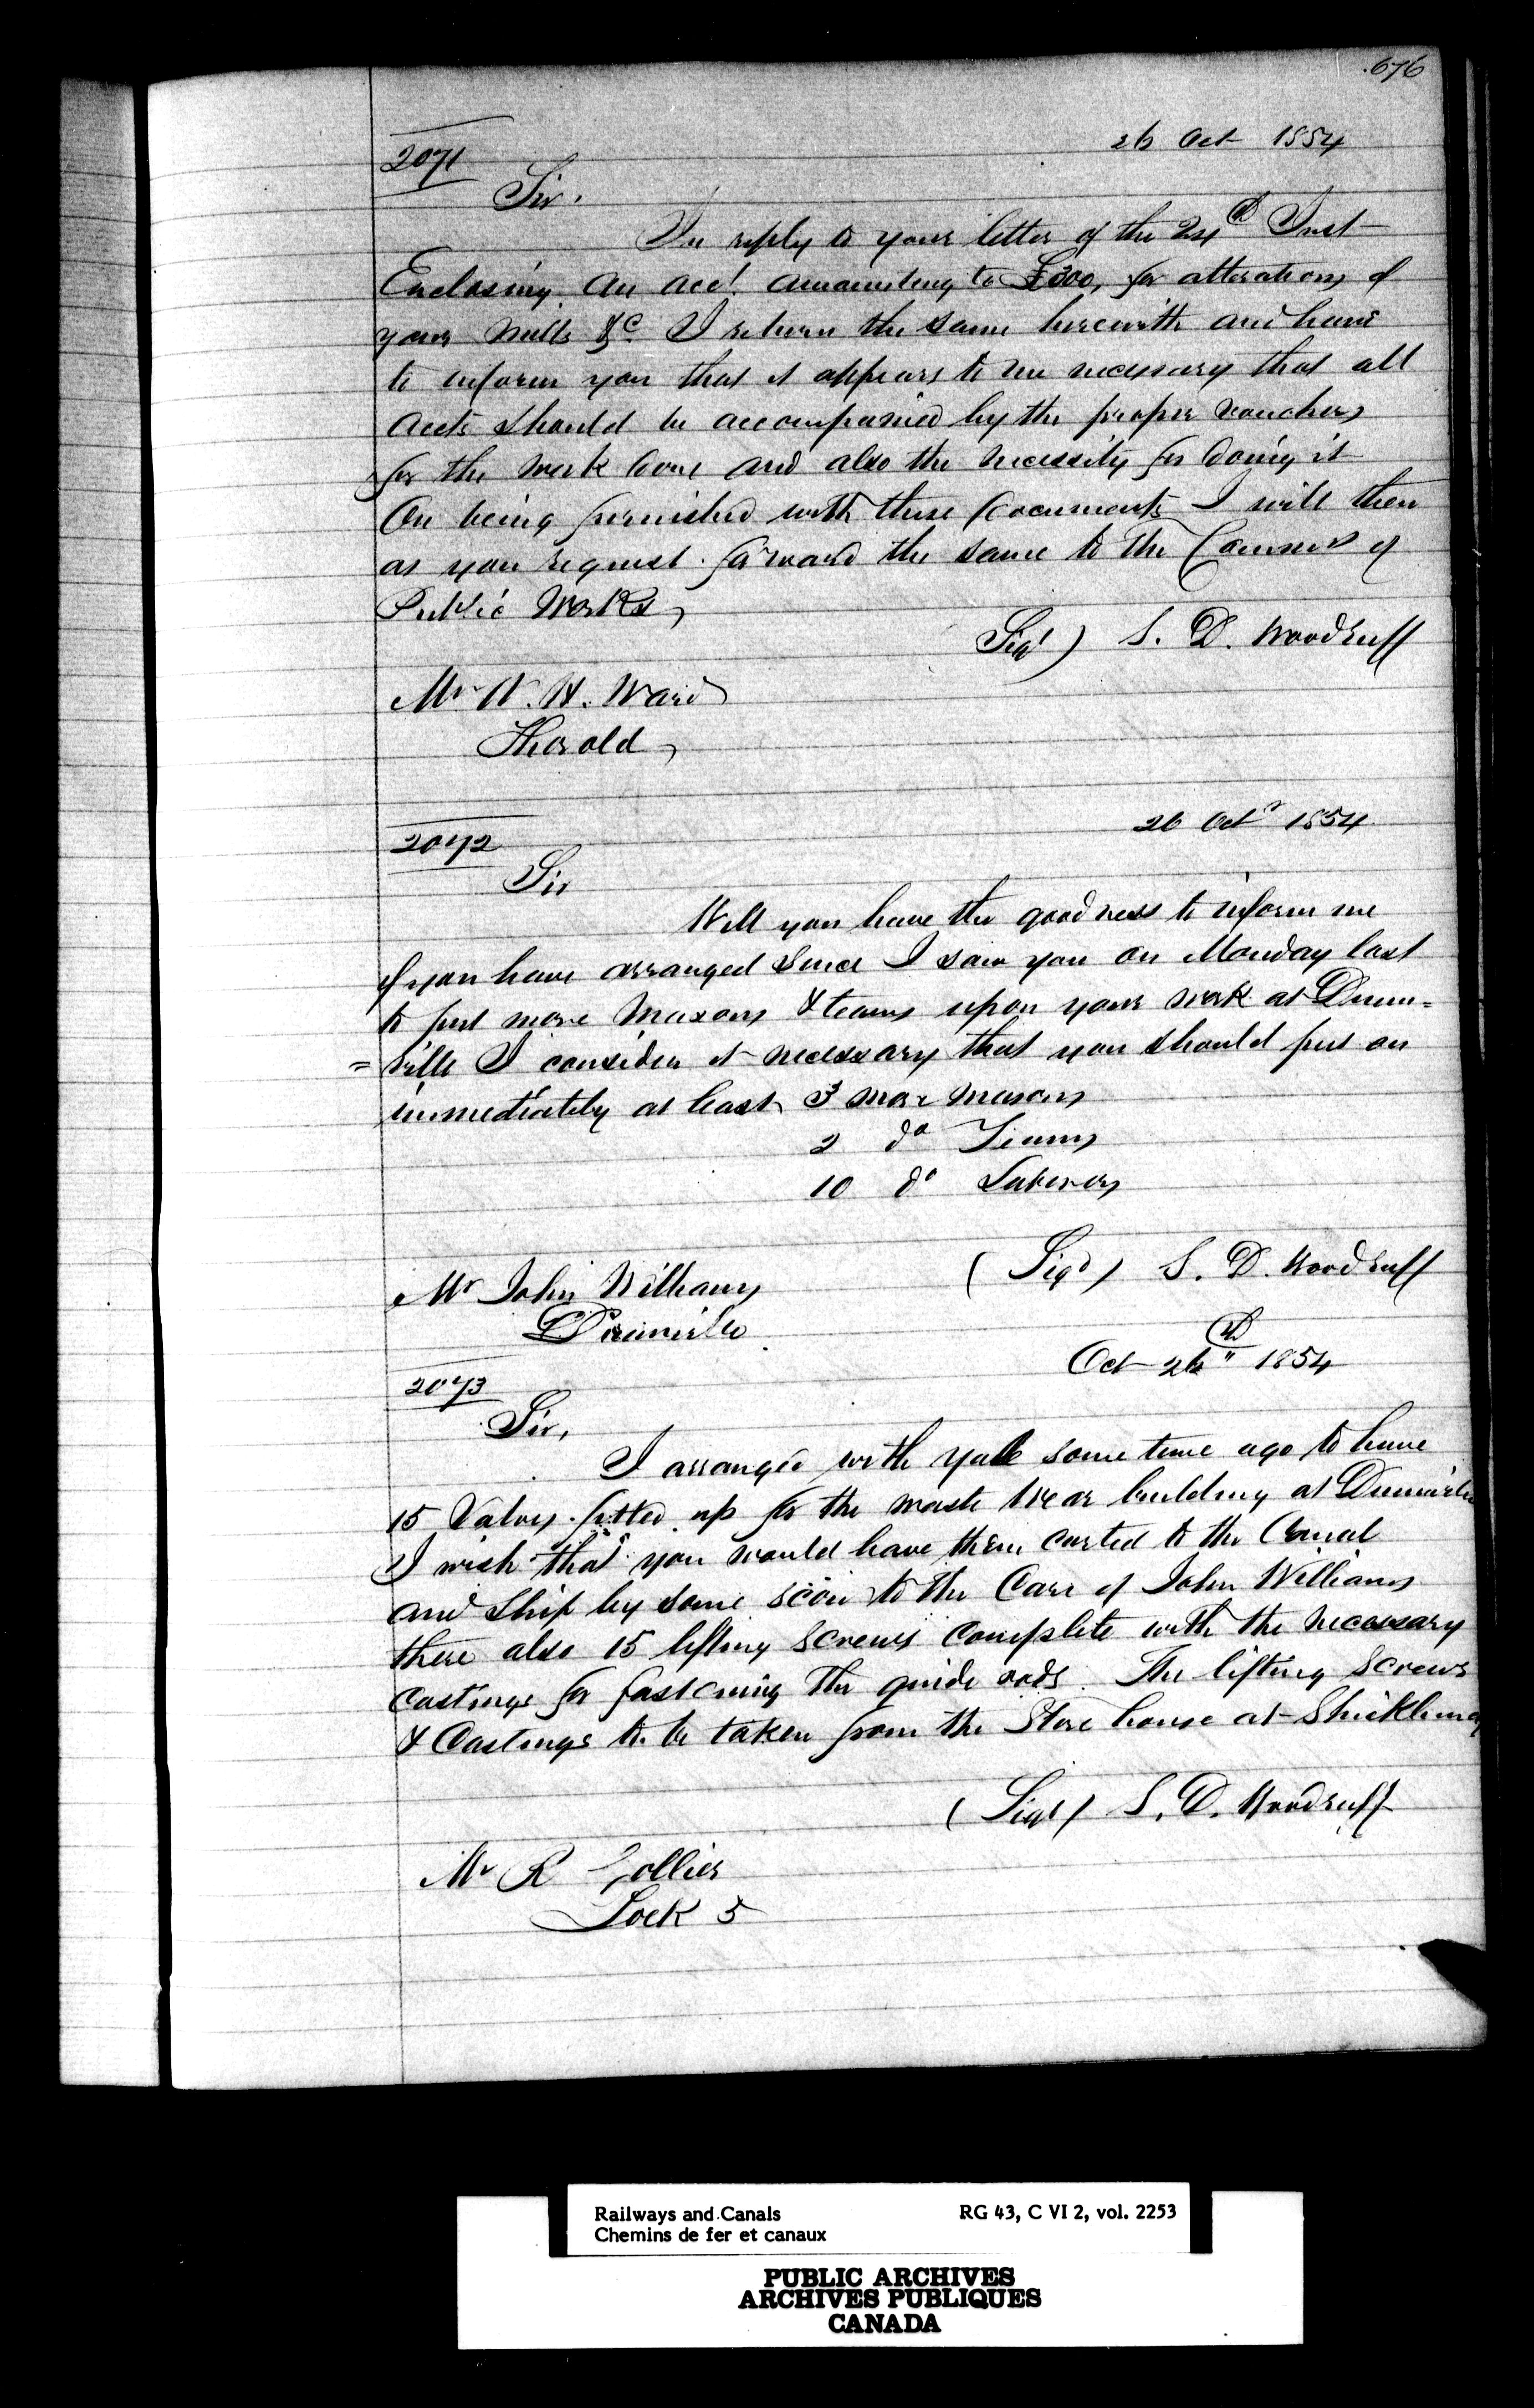 676
26 Oct 1854
2071
Sir.
In reply to your letter of the 24th Inst
Enclosing an acct. amounting to £300, for alterations of
your Mills &c I return the same herewith and have
to inform you that it appears to me necessary that all
accts should be accompanied by the proper vouchers
for the work done and also the necessity for doing it
On being furnished with these documents I will then
as you request forward the same to the Commrs of
Public Works,
Sigd) S. D. Woodruff
Mr W. H. Ward
Thorold,
26 Octr 1854
2072
Sir
Will you have the goodness to inform me
if you have arranged since I saw you on Monday last
to put more Masons & teams upon your work at Dunn=
=ville I consider it necessary that you should put on
immediately at least 3 more masons
2 do Teams
10 do Laborers
(Sigd) S. D. Woodruff
Mr John Williams
Dunnville
Oct 26th 1854
2073
Sir,
I arranged with Yale some time ago to have
15 Valves fitted up for the waste Wear building at Dunnville
I wish that you would have them carted to the Canal
and Ship by some scow to the Care of John Williams
there also 15 lifting screws complete with the necessary
Castings for fastening the guide rods. The lifting Screws
& Castings to be taken from the Store house at Shicklunas
(Sigd) S. D. Woodruff
Mr R Collier
Lock 5
Railways and Canals
Chemins de fer et canaux
RG 43, C VI 2, vol. 2253
PUBLIC ARCHIVES
ARCHIVES PUBLIQUES
CANADA